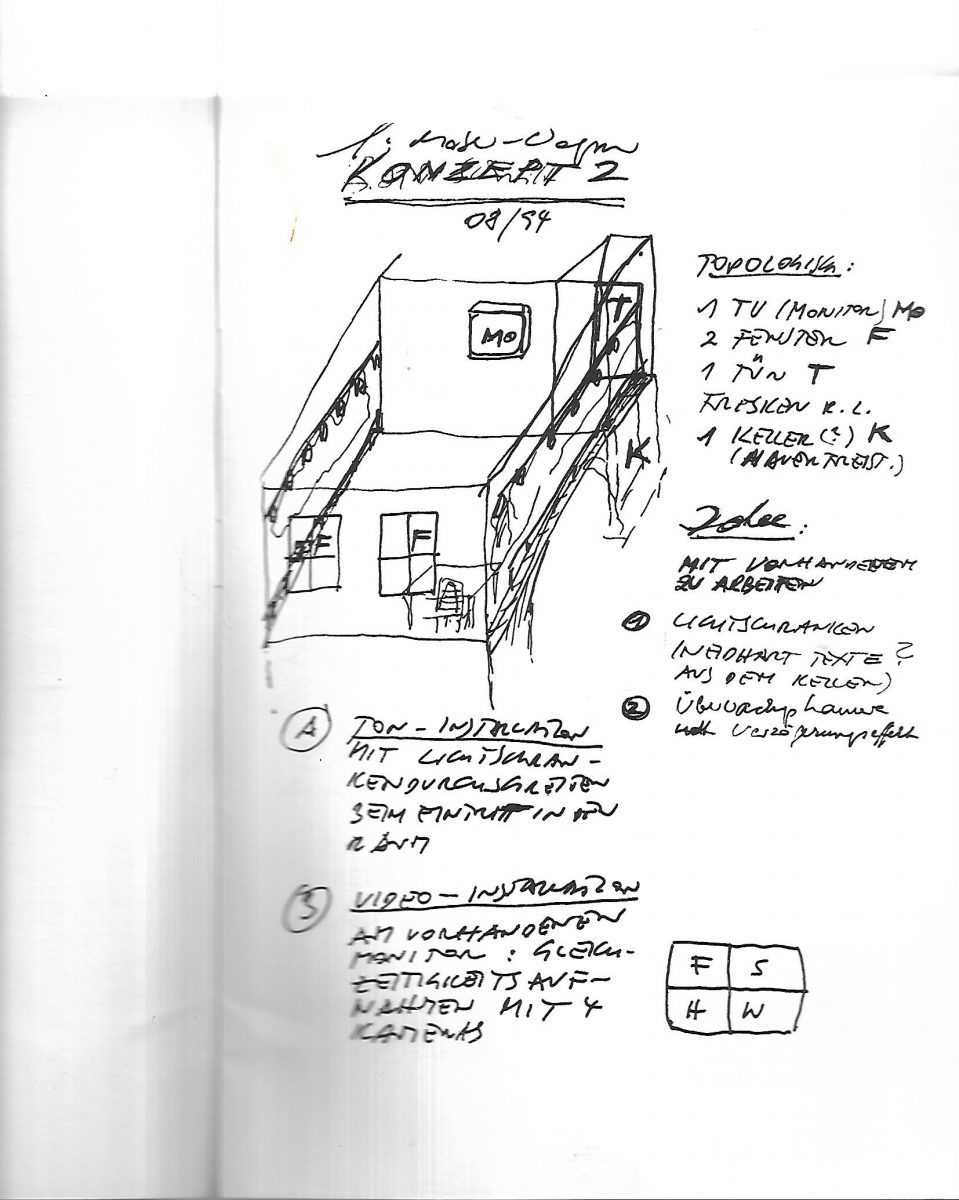 KONZEPT 2
08/94
TOPOLOGISCH:
1 TV (MONITOR) MO
2 FENSTER F
1 TÜR T
FRESKEN R. L.
1 KELLER (?) K
Idee:
MIT VORHANDENEM
ZU ARBEITEN
1 LICHTSCHRANKEN
(NEIDHART TEXTE ?
AUS DEM KELLER)
2 Überwachungskamera
Verzögerungseffekt
MO
T
K
F
F
A TON-INSTALLATION
MIT LICHTSCHRAN-
KENDURCHSCHREITEN
BEIM EINTRITT IN DEN
RAUM
B VIDEO-INSTALLATION
AM VORHANDENEN
MONITOR: GLEICH-
ZEITIGKEITSAUF-
NAHMEN MIT 4
KAMERAS
F S
H W